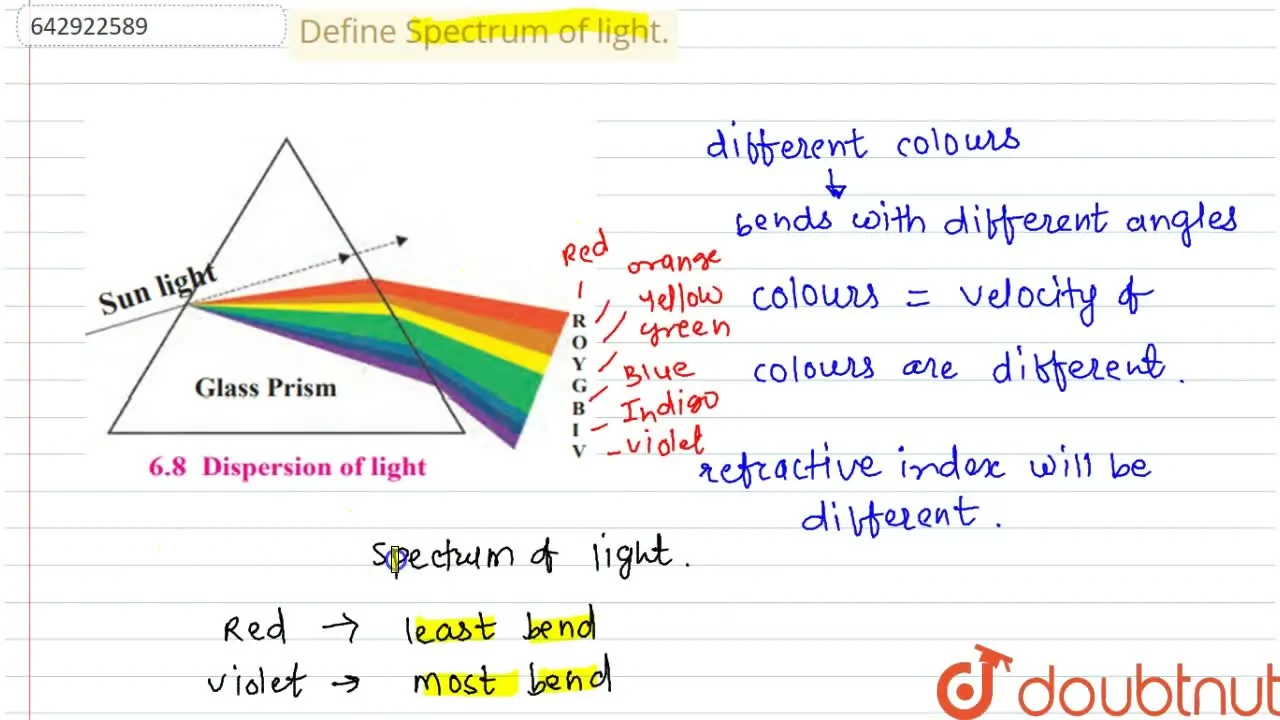 642922589
Define Spectrum of light.
different colours
bends with different angles
Sun light
Glass Prism
R
O
Y
G
B
I
V
Red
orange
Yellow
green
Blue
Indigo
violet
6.8 Dispersion of light
colours = velocity of
colours are different.
refractive index will be
different.
Spectrum of light.
Red → least bend
violet → most bend
doubtnut